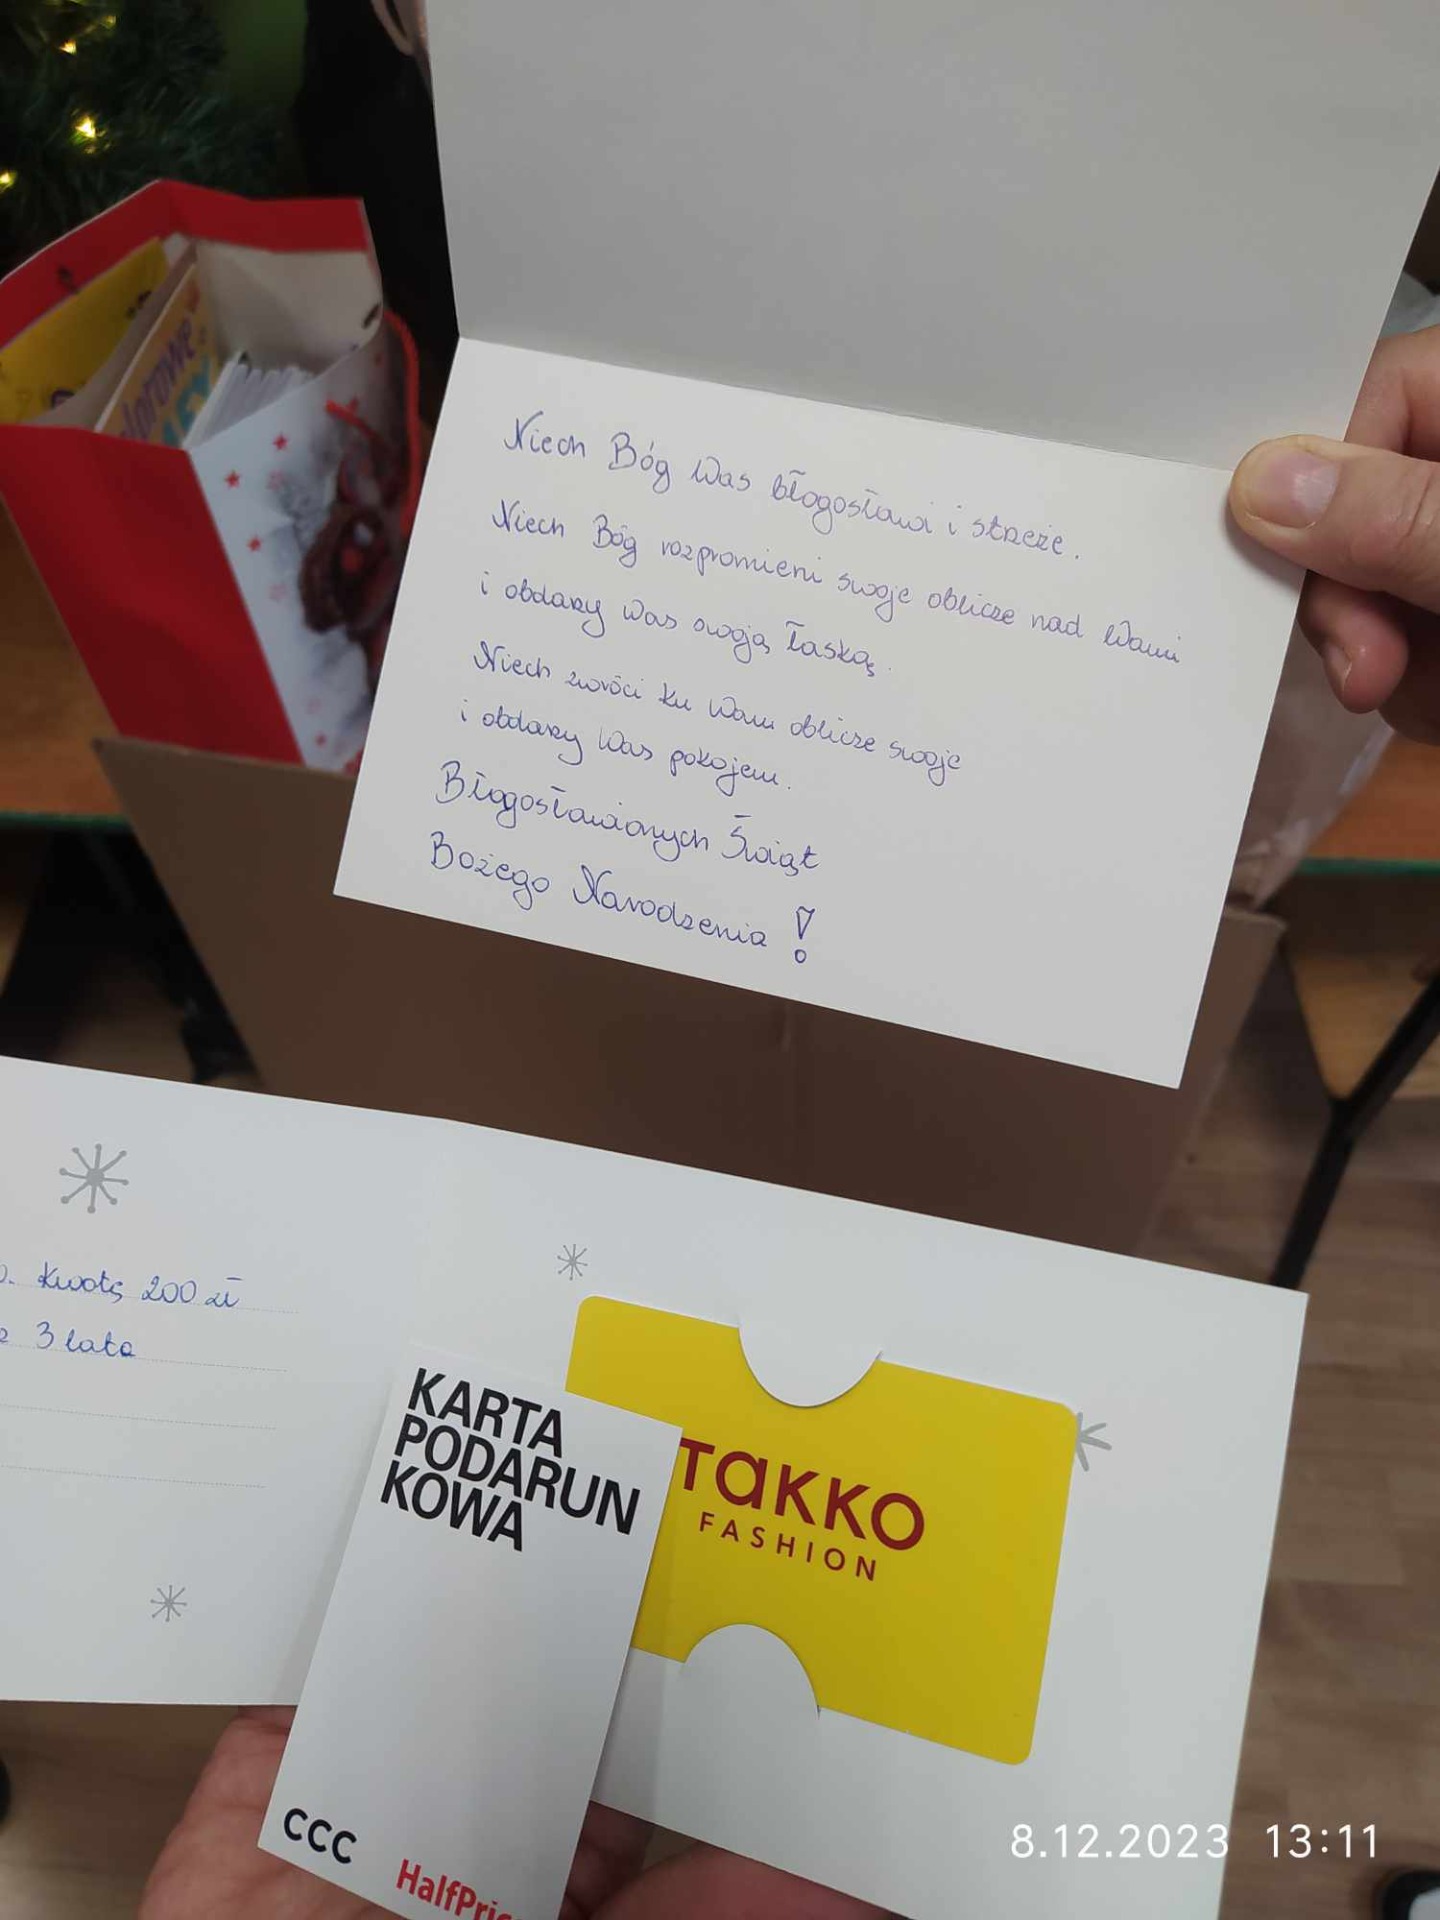 Niech Bóg Was błogosławi i strzeże.
Niech Bóg rozpromieni swoje oblicze nad Wami
i obdarzy Was swoją łaską.
Niech zwróci ku Wam oblicze swoje
i obdarzy Was pokojem.
Błogosławionych Świąt
Bożego Narodzenia!
kwotę 200 zł
3 lata
KARTA
PODARUN
KOWA
CCC
HalfPric
TaKKO
FASHION
8.12.2023 13:11